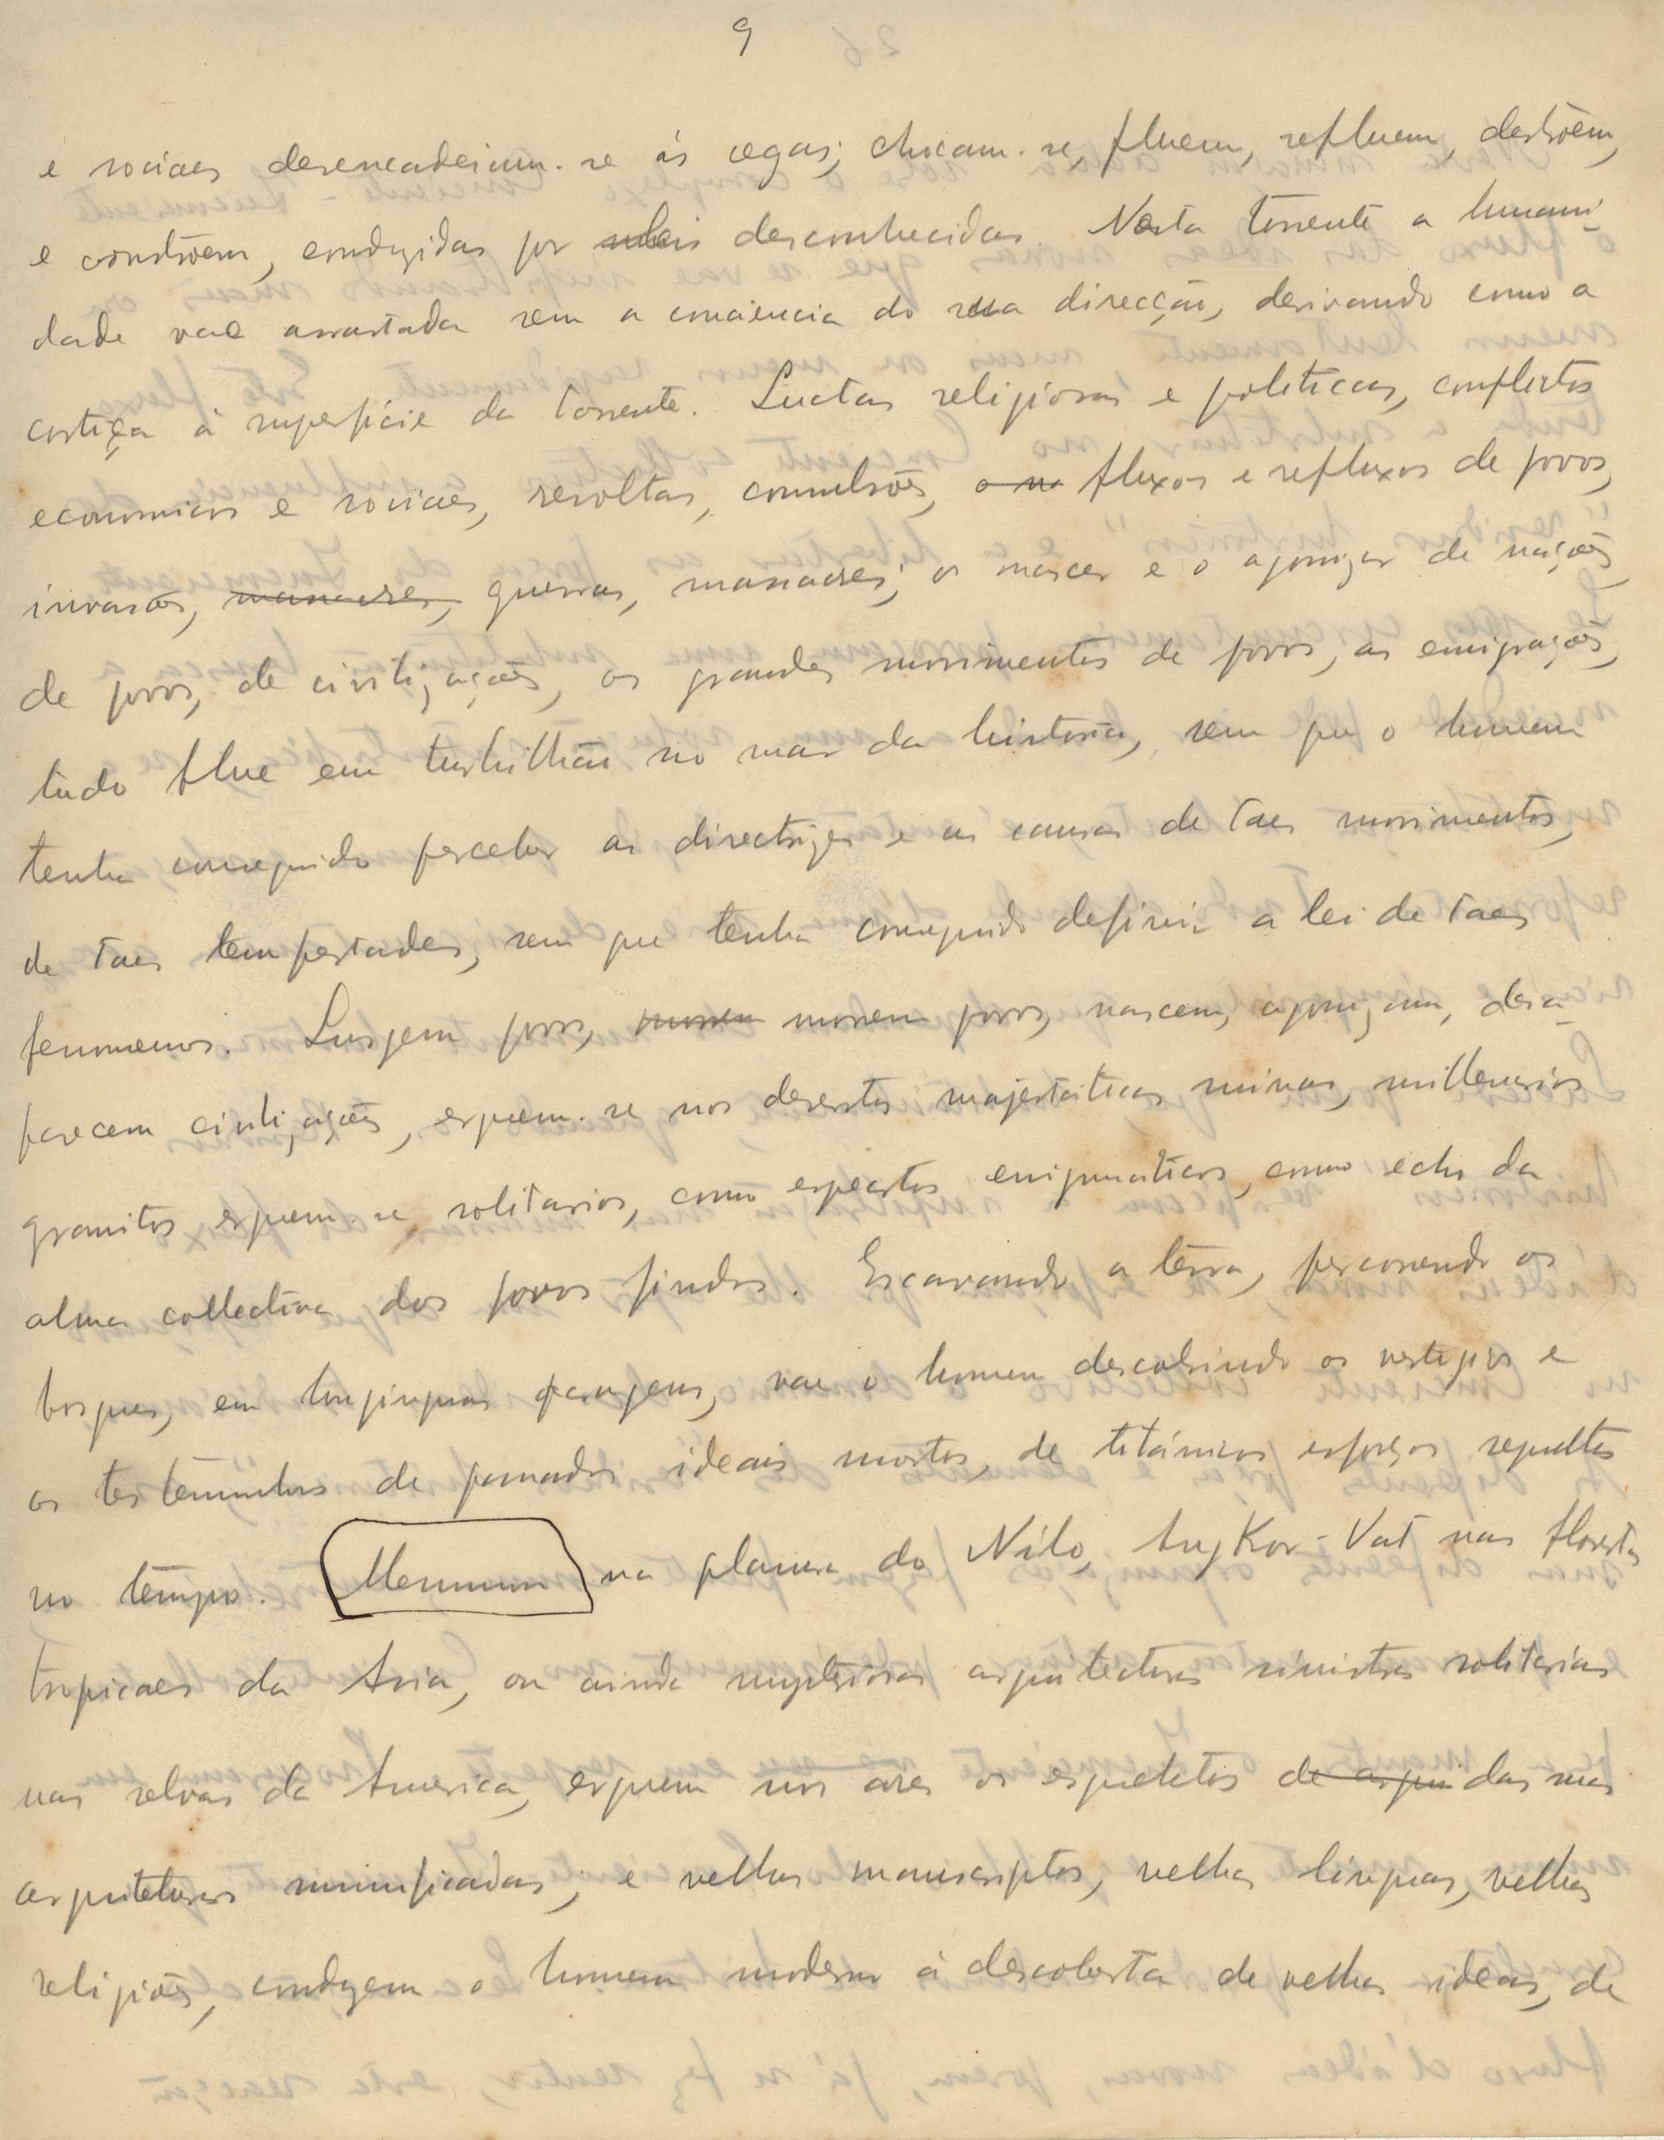 9
e sociaes desencadeiam-se ás cegas; chocam-se, fluem, refluem, destróem,
e constróem, conduzidas por leis desconhecidas. Nesta torrente a humani-
dade vae arrastada sem a consciencia do sua direcção, derivando como a
cortiça à superficie da torrente. Luctas religiosas e politicas, conflictos
economicos e sociaes, revoltas, convulsões, fluxos e refluxos de povos,
invasões, massacres, guerras, massacres; o nascer e o agonizar de nações,
de povos, de civilizações, os grandes movimentos de povos, as emigrações,
tudo flue em turbilhão no mar da historia, sem que o homem
tenha conseguido perceber as directrizes e as causas de taes movimentos,
de taes tempestades, sem que tenha conseguido definir a lei de taes
fenomenos. Surgem povos, morrem morrem povos, nascem, agonizam, desa-
parecem civilizações, erguem-se nos desertos majestáticas ruinas, millenarios
granitos erguem-se solitarios, como espectros enigmaticos, como echo da
alma collectiva dos povos findos. Escavando a terra, percorrendo os
bosques, em longinquas paragens, vae o homem descobrindo os vestigios e
os testemunhos de passados ideais mortos, de titánicos esforços sepultos
no tempo. Memnon na planura do Nilo, Angkor-Vat nas florestas
tropicaes da Asia, ou ainda mysteriosas arquitecturas sinistras solitarias
nas selvas da America, erguem nos ares os esqueletos de arqui das suas
arquiteturas mumificadas; e velhos manuscriptos, velhas linguas, velhas
religiões, conduzem o homem moderno á descoberta de velhas ideas, de